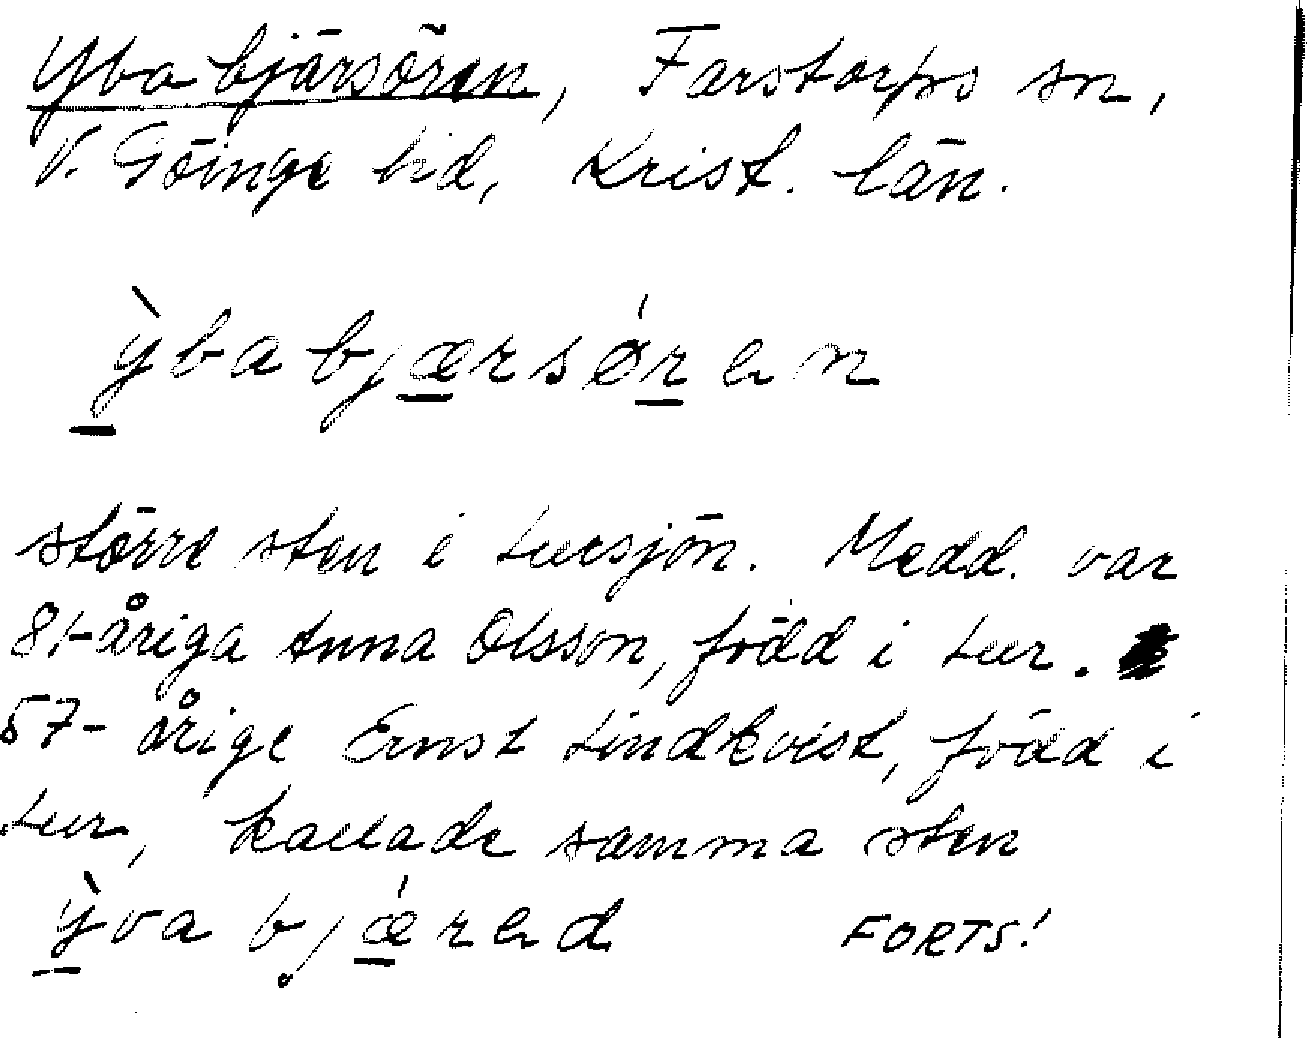 Ybabjärsören, Farstorps sn,
V. Göinge hd, Krist. län.
ỳbabjærsǿren
större sten i Lursjön. Medd. var
81-åriga Anna Olsson, född i Lur.
57-årige Ernst Lindkvist, född i
Lur, kallade samma sten
ỳva bjǽred FORTS!